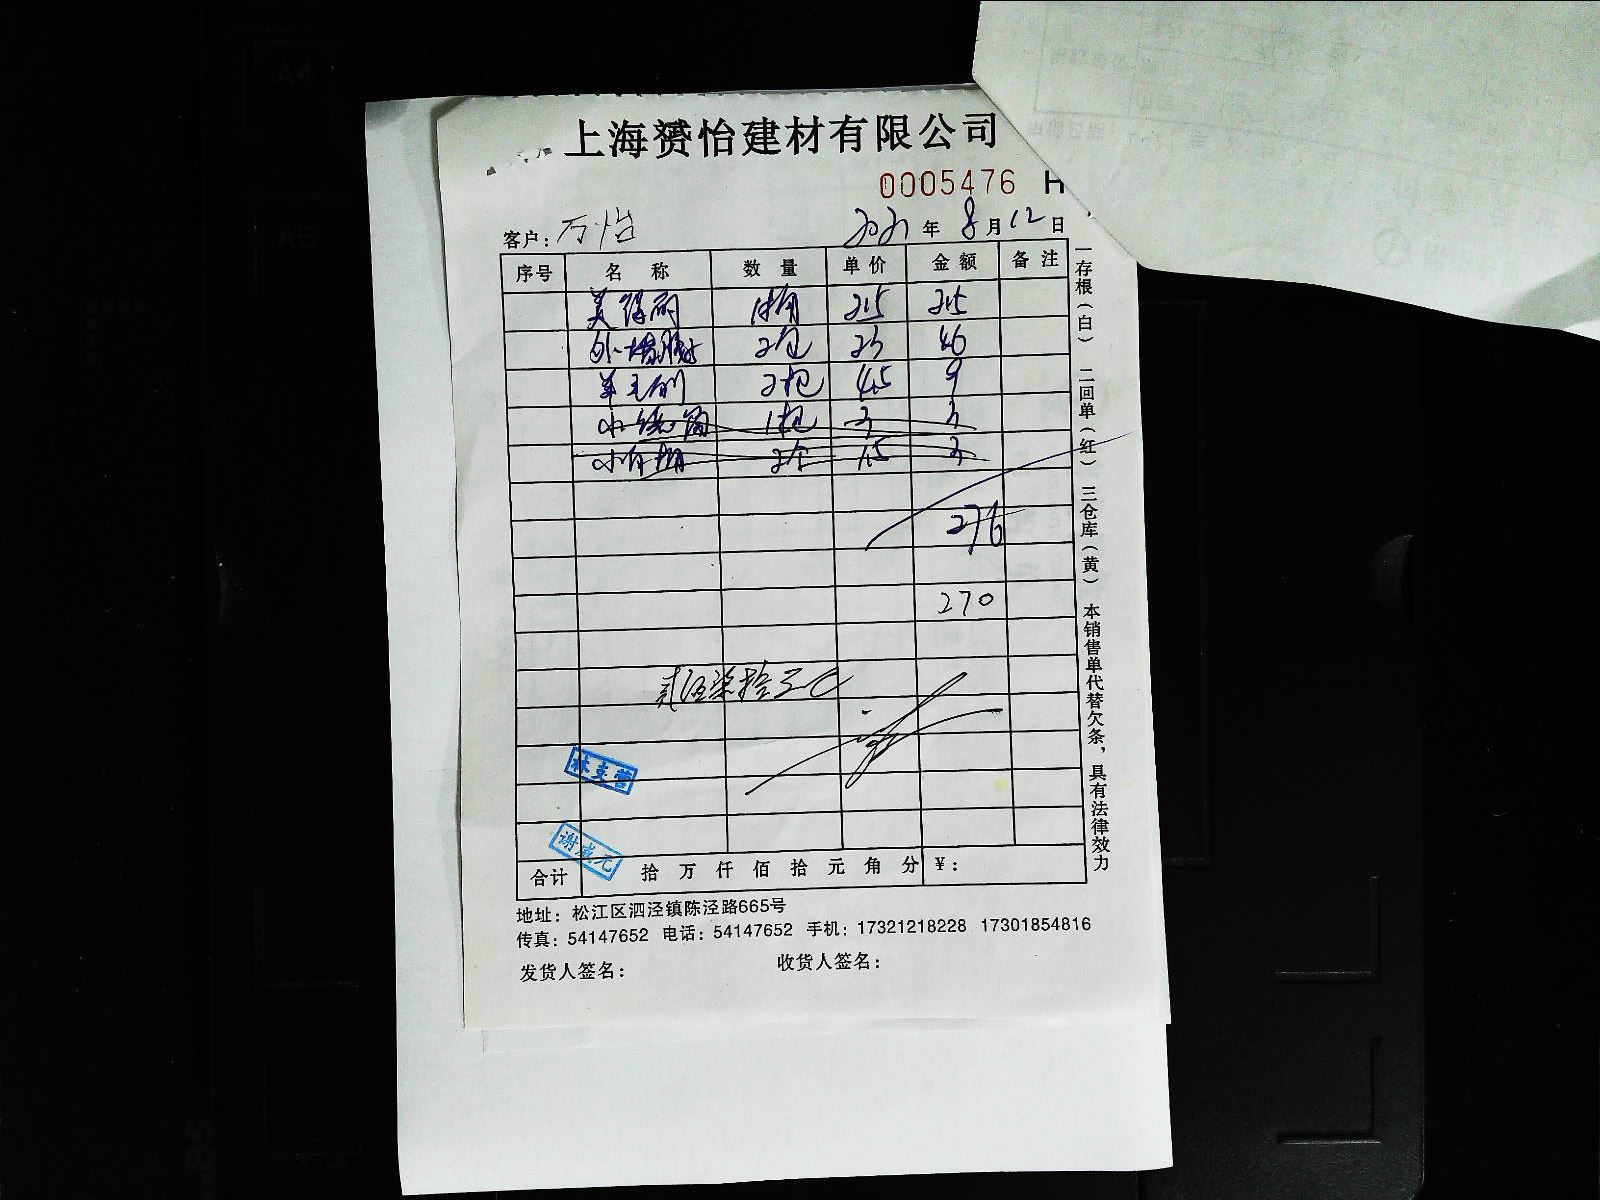 上海赟怡建材有限公司
0005476 H
客户：万怡 2021年8月12日
序号 名称 数量 单价 金额 备注
美得丽 1桶 215 215
外墙腻子 2包 23 46
羊毛刷 2把 4.5 9
1把 3 3
2个 1.5 3
276
270
贰佰柒拾元
林支营
谢咸元
合计 拾 万 仟 佰 拾 元 角 分 ¥：
地址：松江区泗泾镇陈泾路665号
传真：54147652 电话：54147652 手机：17321218228 17301854816
发货人签名： 收货人签名：
一存根（白） 二回单（红） 三仓库（黄） 本销售单代替欠条，具有法律效力
A4
A5
B5